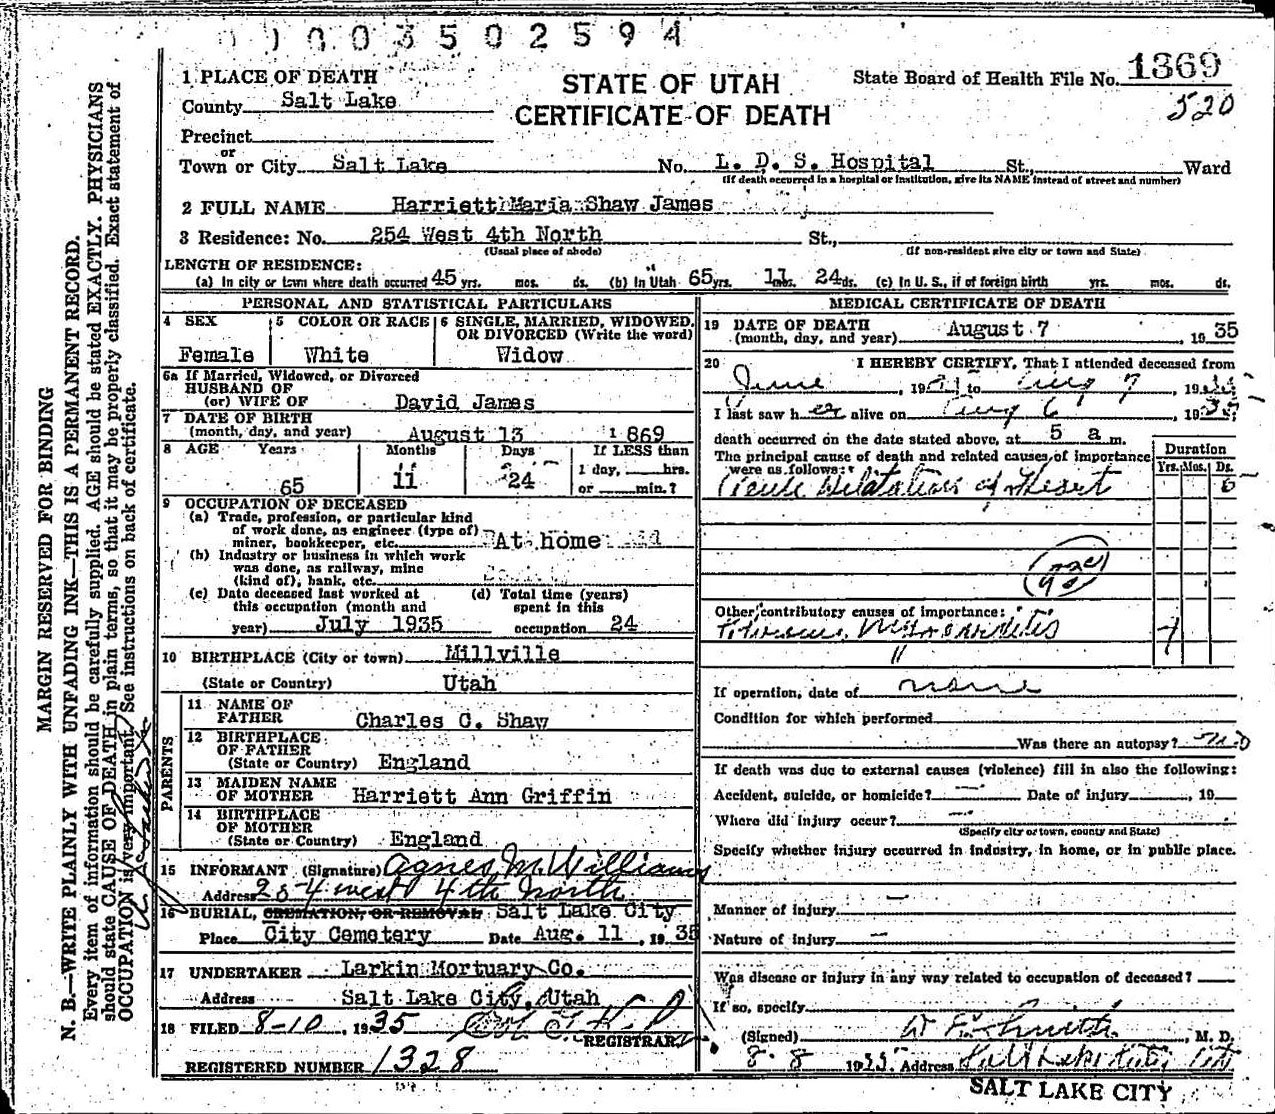 0003502594
1369
520
STATE OF UTAH
CERTIFICATE OF DEATH
State Board of Health File No.
1 PLACE OF DEATH
County Salt Lake
Precinct
or
Town or City Salt Lake No. L. D. S. Hospital St., Ward
(If death occurred in a hospital or institution, give its NAME instead of street and number)
2 FULL NAME Harriett Maria Shaw James
3 Residence: No. 254 West 4th North St.,
(Usual place of abode) (If non-resident give city or town and State)
LENGTH OF RESIDENCE:
(a) In city or town where death occurred 45 yrs. mos. ds. (b) In Utah 65 yrs. 11 mos. 24 ds. (c) In U. S., if of foreign birth yrs. mos. ds.
PERSONAL AND STATISTICAL PARTICULARS
4 SEX
Female
5 COLOR OR RACE
White
6 SINGLE, MARRIED, WIDOWED,
OR DIVORCED (Write the word)
Widow
6a If Married, Widowed, or Divorced
HUSBAND OF
(or) WIFE OF David James
7 DATE OF BIRTH
(month, day, and year) August 13 1869
8 AGE Years Months Days If LESS than
1 day, hrs.
65 11 24 or min.?
9 OCCUPATION OF DECEASED
(a) Trade, profession, or particular kind
of work done, as engineer (type of)
miner, bookkeeper, etc. At home
(b) Industry or business in which work
was done, as railway, mine
(kind of), bank, etc.
(c) Date deceased last worked at (d) Total time (years)
this occupation (month and spent in this
year) July 1935 occupation 24
10 BIRTHPLACE (City or town) Millville
(State or Country) Utah
PARENTS
11 NAME OF
FATHER Charles C. Shaw
12 BIRTHPLACE
OF FATHER
(State or Country) England
13 MAIDEN NAME
OF MOTHER Harriett Ann Griffin
14 BIRTHPLACE
OF MOTHER
(State or Country) England
15 INFORMANT (Signature) Agnes M. Williams
Address 254 west 4th north
16 BURIAL, CREMATION, OR REMOVAL Salt Lake City
Place City Cemetery Date Aug. 11, 1935
17 UNDERTAKER Larkin Mortuary Co.
Address Salt Lake City, Utah
18 FILED 8-10, 1935
REGISTRAR
REGISTERED NUMBER 1328
MEDICAL CERTIFICATE OF DEATH
19 DATE OF DEATH
(month, day, and year) August 7, 1935
20 I HEREBY CERTIFY, That I attended deceased from
June, 19 to Aug 7, 19
I last saw her alive on Aug 6, 1935
death occurred on the date stated above, at 5 a m.
The principal cause of death and related causes of importance
were as follows:
Duration
Yrs. Mos. Ds.
Acute Dilatation of Heart 6
Other contributory causes of importance:
Fibrous Myocarditis
If operation, date of none
Condition for which performed
Was there an autopsy? no
If death was due to external causes (violence) fill in also the following:
Accident, suicide, or homicide? — Date of injury, 19
Where did injury occur? —
(Specify city or town, county and State)
Specify whether injury occurred in industry, in home, or in public place.
Manner of injury —
Nature of injury —
Was disease or injury in any way related to occupation of deceased?
If so, specify
(Signed) M. D.
8-8 1935 Address Salt Lake City
SALT LAKE CITY
MARGIN RESERVED FOR BINDING
N. B.—WRITE PLAINLY WITH UNFADING INK—THIS IS A PERMANENT RECORD.
Every item of information should be carefully supplied. AGE should be stated EXACTLY. PHYSICIANS
should state CAUSE OF DEATH in plain terms, so that it may be properly classified. Exact statement of
OCCUPATION is very important. See instructions on back of certificate.